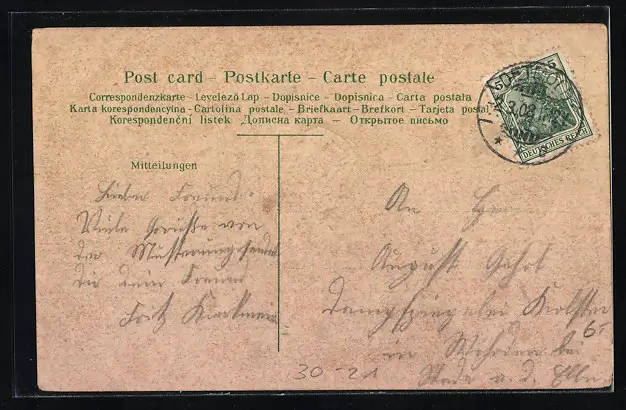 Post card – Postkarte – Carte postale
Correspondenzkarte - Levelező Lap - Dopisnice - Dopisnica - Carta postala
Karta korespondencyjna - Cartolina postale - Briefkaart - Brefkort - Tarjeta postal
Korespondenční listek Дописна карта — Открытое письмо
DEUTSCHES REICH
Mitteilungen
Lieber Freund.
Viele Grüße von
der Musterung sendet
Dir dein Freund
Fritz
An Herrn
August
Dampfziegelei
in bei
Stade a. d. Elbe
30-21
6-